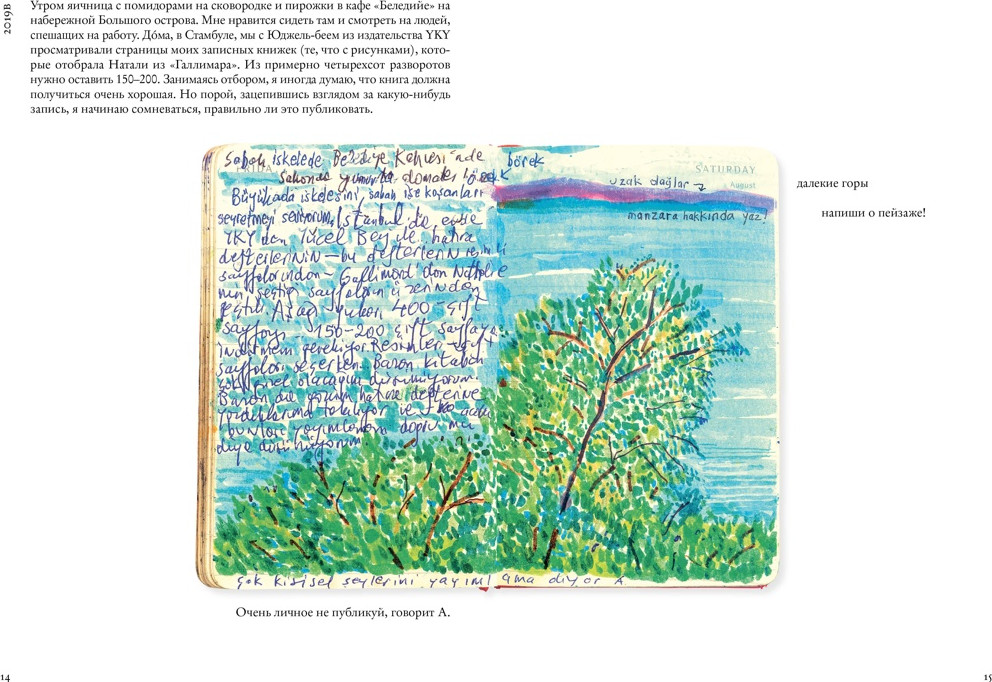 2019B
Утром яичница с помидорами на сковородке и пирожки в кафе «Беледийе» на
набережной Большого острова. Мне нравится сидеть там и смотреть на людей,
спешащих на работу. До́ма, в Стамбуле, мы с Юджель-беем из издательства YKY
просматривали страницы моих записных книжек (те, что с рисунками), кото-
рые отобрала Натали из «Галлимара». Из примерно четырехсот разворотов
нужно оставить 150–200. Занимаясь отбором, я иногда думаю, что книга должна
получиться очень хорошая. Но порой, зацепившись взглядом за какую-нибудь
запись, я начинаю сомневаться, правильно ли это публиковать.
Sabah iskelede Belediye Kahvesi'nde börek
Sahanda yumurta domates börek
Büyükada iskelesini, sabah işe koşanları
seyretmeyi seviyorum. İstanbul'da evde
YKY'den Yücel Bey ile hatıra
defterlerinin – bu defterlerin resimli
sayfalarından – Gallimard'dan Nathalie'
nin seçtiği sayfaların üzerinden
geçtik. Aşağı yukarı 400 çift
sayfayı 150–200 çift sayfaya
indirmem gerekiyor. Resimleri çift
sayfaları seçerken. Bazen kitabın
çok güzel olacağını düşünüyorum.
Bazen de gözüm hatıra defterine
yazdıklarıma takılıyor ve
bunları yayımlamam doğru mu
diye düşünüyorum.
SATURDAY
August
uzak dağlar
manzara hakkında yaz!
далекие горы
напиши о пейзаже!
çok kişisel şeylerini yayımlama diyor A.
Очень личное не публикуй, говорит А.
14
15